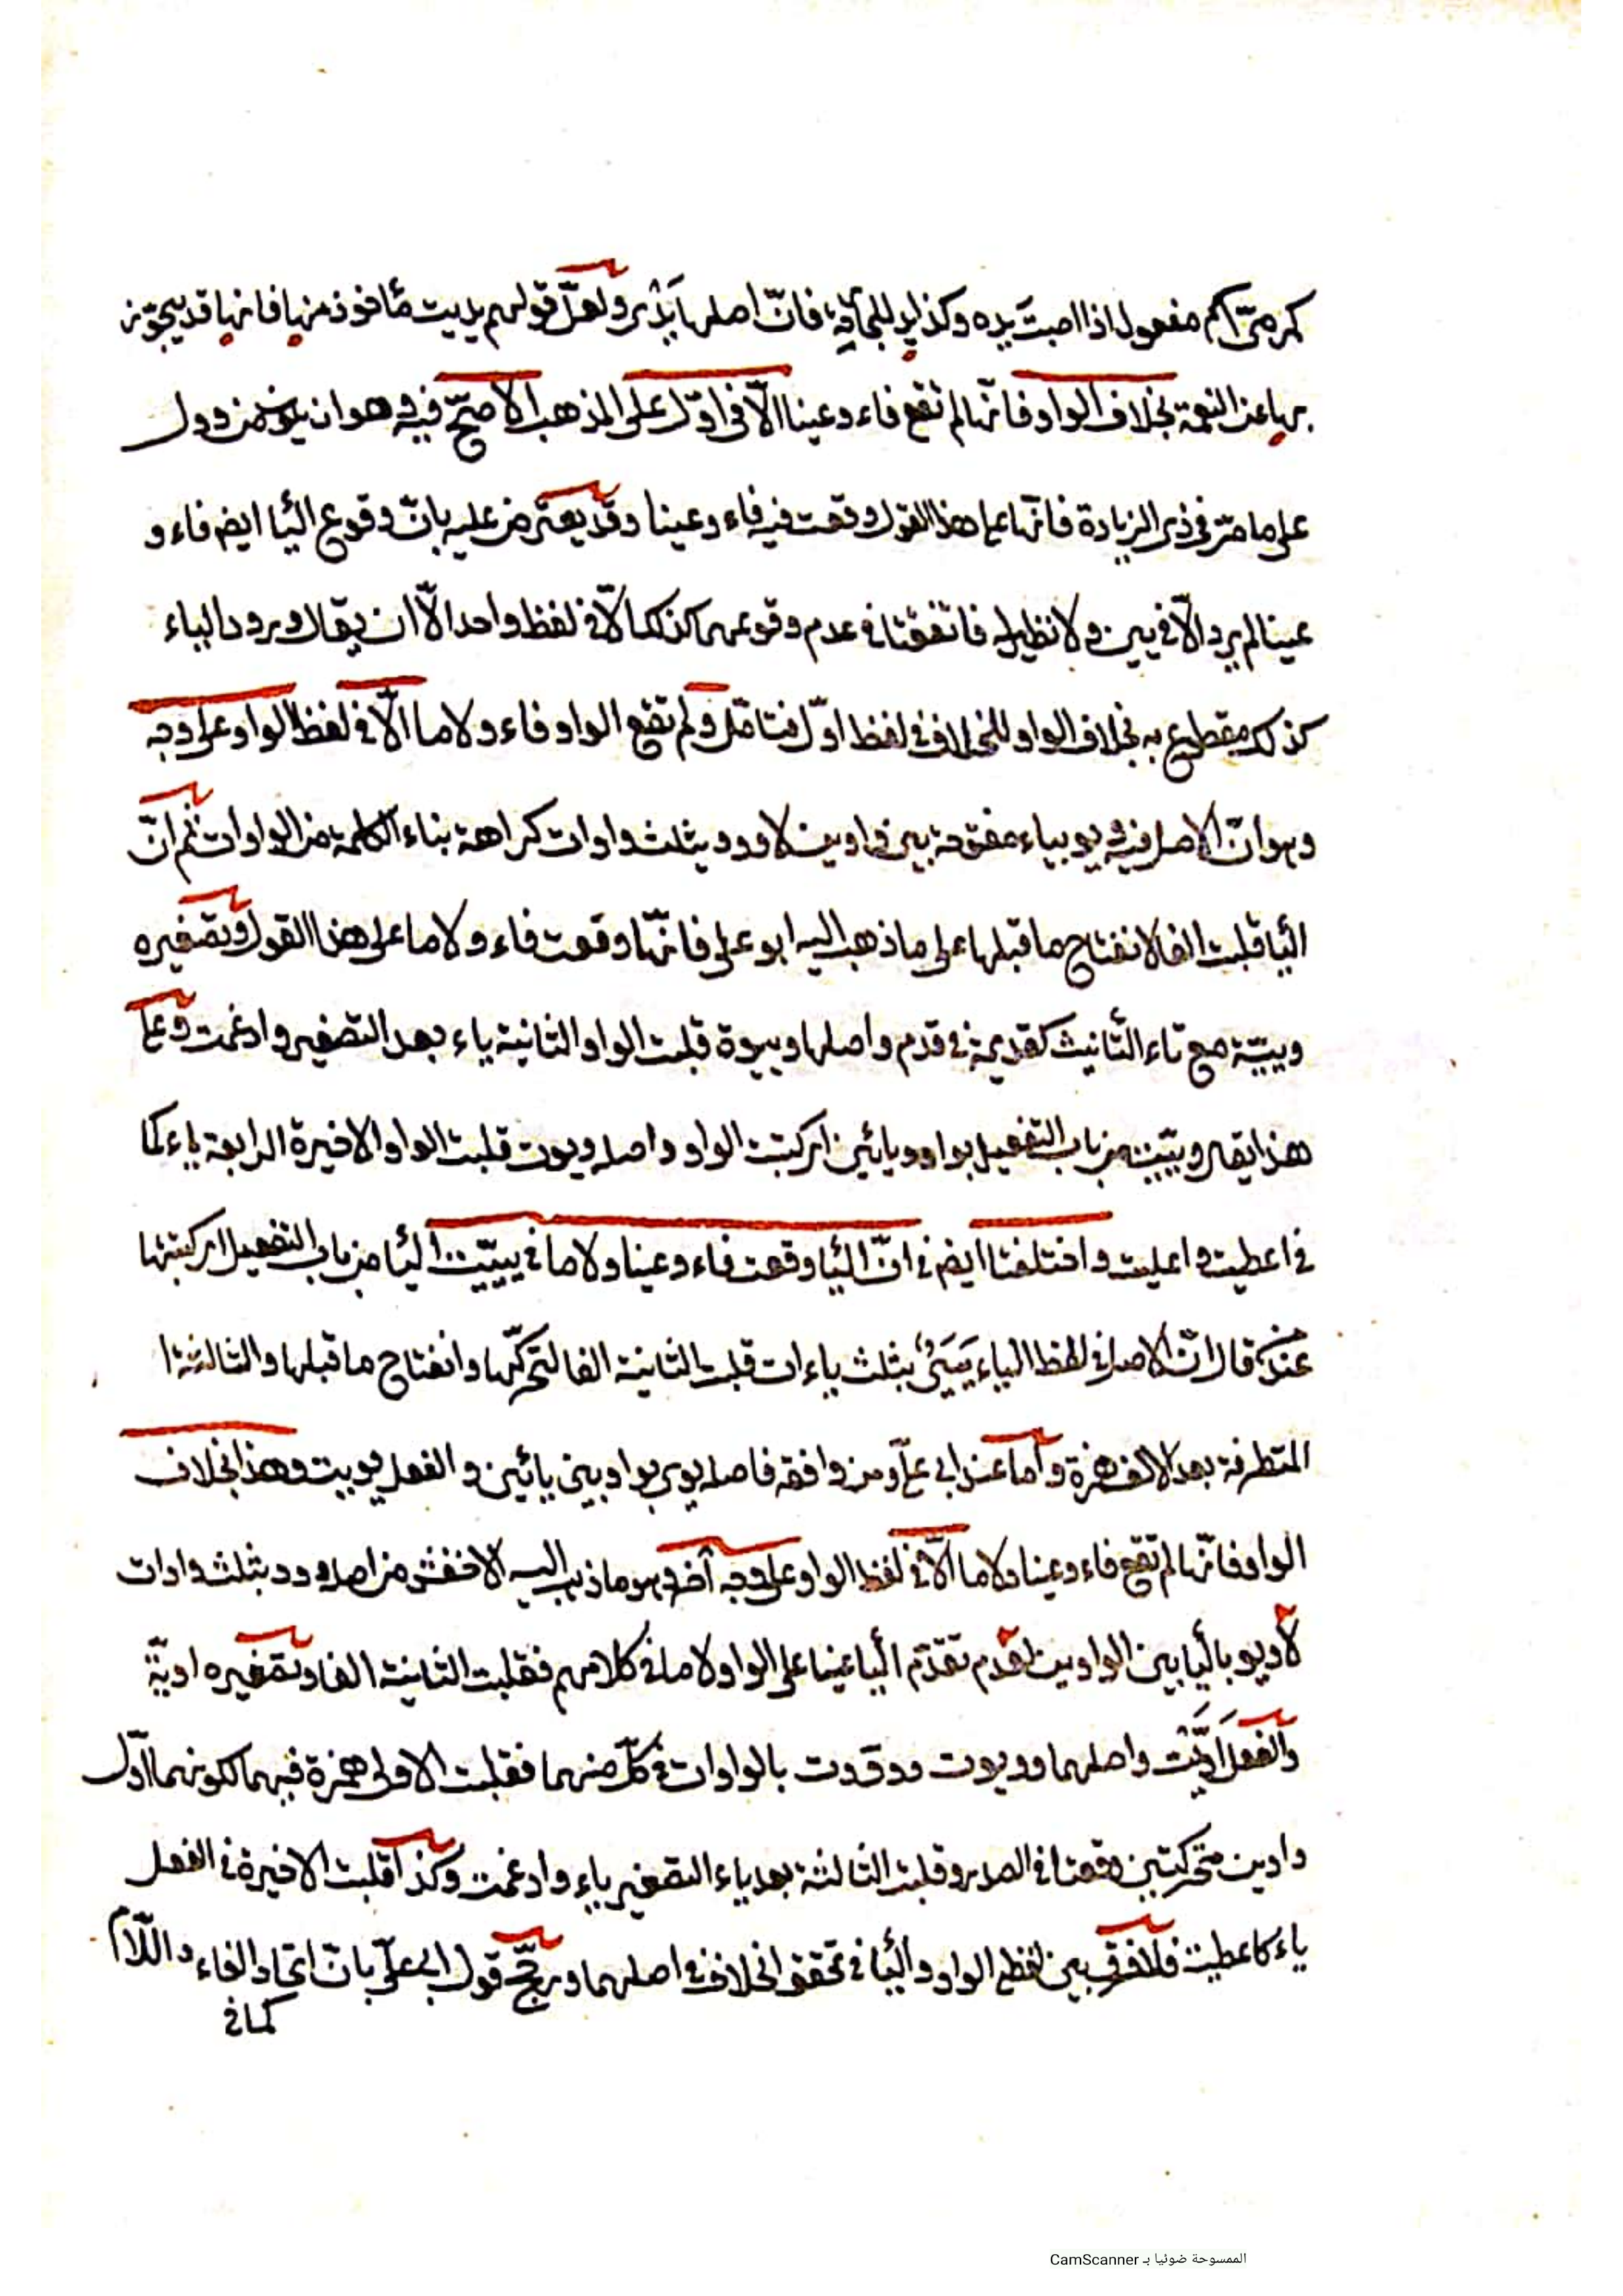 كمرمىّ اسم مفعول اذا اصبت يده وكذا يد للمجازية فانّ اصلها يَدْىٌ ولعلّ قولهم يديت مأخوذ منها فانها قد يتجوّز
بها عن النعمة بخلاف الواو فانّها لم تقع فاء وعينا الّا فى اوّل على المذهب الاصحّ فيه وهو ان يكون من وول
على ما مرّ فى ذى الزيادة فانّها على هذا القول وقعت فيه فاء وعينا وقد يعترض عليه بانّ وقوع اليا ايضم فاء و
عينا لم يرد الّا فى يين ولا نظير له فاتفقتا فى عدم وقوعهما كذلك الّا فى لفظ واحد الّا ان يقال ورود الياء
كذلك مقطوع به بخلاف الواو للخلاف فى لفظ اوّل فتامّل ولم تقع الواو فاء ولاما الّا فى لفظ الواو على وجه
وهو انّ الاصل فيه ويو بياء مفتوحة بين واوين لا ووو بثلث واوات كراهة بناء الكلمة من الواوات ثم انّ
اليا قلبت الفا لانفتاح ما قبلها على ما ذهب اليه ابو على فانّها وقعت فاء ولاما على هذا القول وتصغيره
وييّة مع تاء التأنيث كقديمة فى قدم واصلها وييوة قلبت الواو الثانية ياء بعد التصغير وادغمت وعلى
هذا يقال وييّت من باب التفعيل بواو ويائين اى كتبت الواو واصله ويوت قلبت الواو الاخيرة الرابعة ياء كما
فى اعطيت واعليت واختلفتا ايضم فى انّ اليا وقعت فاء وعينا ولاما فى يييّت اليا من باب التفعيل اى كتبتها
عند من قال انّ الاصل فى لفظ الياء يَيَىٌ بثلث ياءات قلبت الثانية الفا لتحركّها وانفتاح ما قبلها والثالثة ا
المتطرفة بعد الالف همزة وأما عند ابى علىّ ومن وافقه فاصله يوى بواو بين يائين والفعل يوييت وهذا بخلاف
الواو فانّها لم تقع فاء وعينا ولاما الّا فى لفظ الواو على وجه آخر وهو ما ذهب اليه الاخفش من اصله ووو بثلث واوات
لا ويو باليا بين الواوين لعدم تقدّم اليا عينا على الواو لاما فى كلامهم فقلبت الثانية الفا وتصغيره اويّة
والفعل اَوَّيْت واصلهما وويوت ووّوت بالواوات فى كلّ منهما فقلبت الاولى همزة فيهما لكونهما اوّل
واوين متحركتين وقعتا فى الصدر وقلبت الثالثة بعد ياء التصغير ياء وادغمت وكذا قلبت الاخيرة فى الفعل
ياء كاعطيت فلا فرق بين لفظى الواو واليا فى تحقق الخلاف فى اصلهما ورجّح قول ابى علىّ بانّ اتحاد الفاء واللّام
كما فى
الممسوحة ضوئيا بـ CamScanner